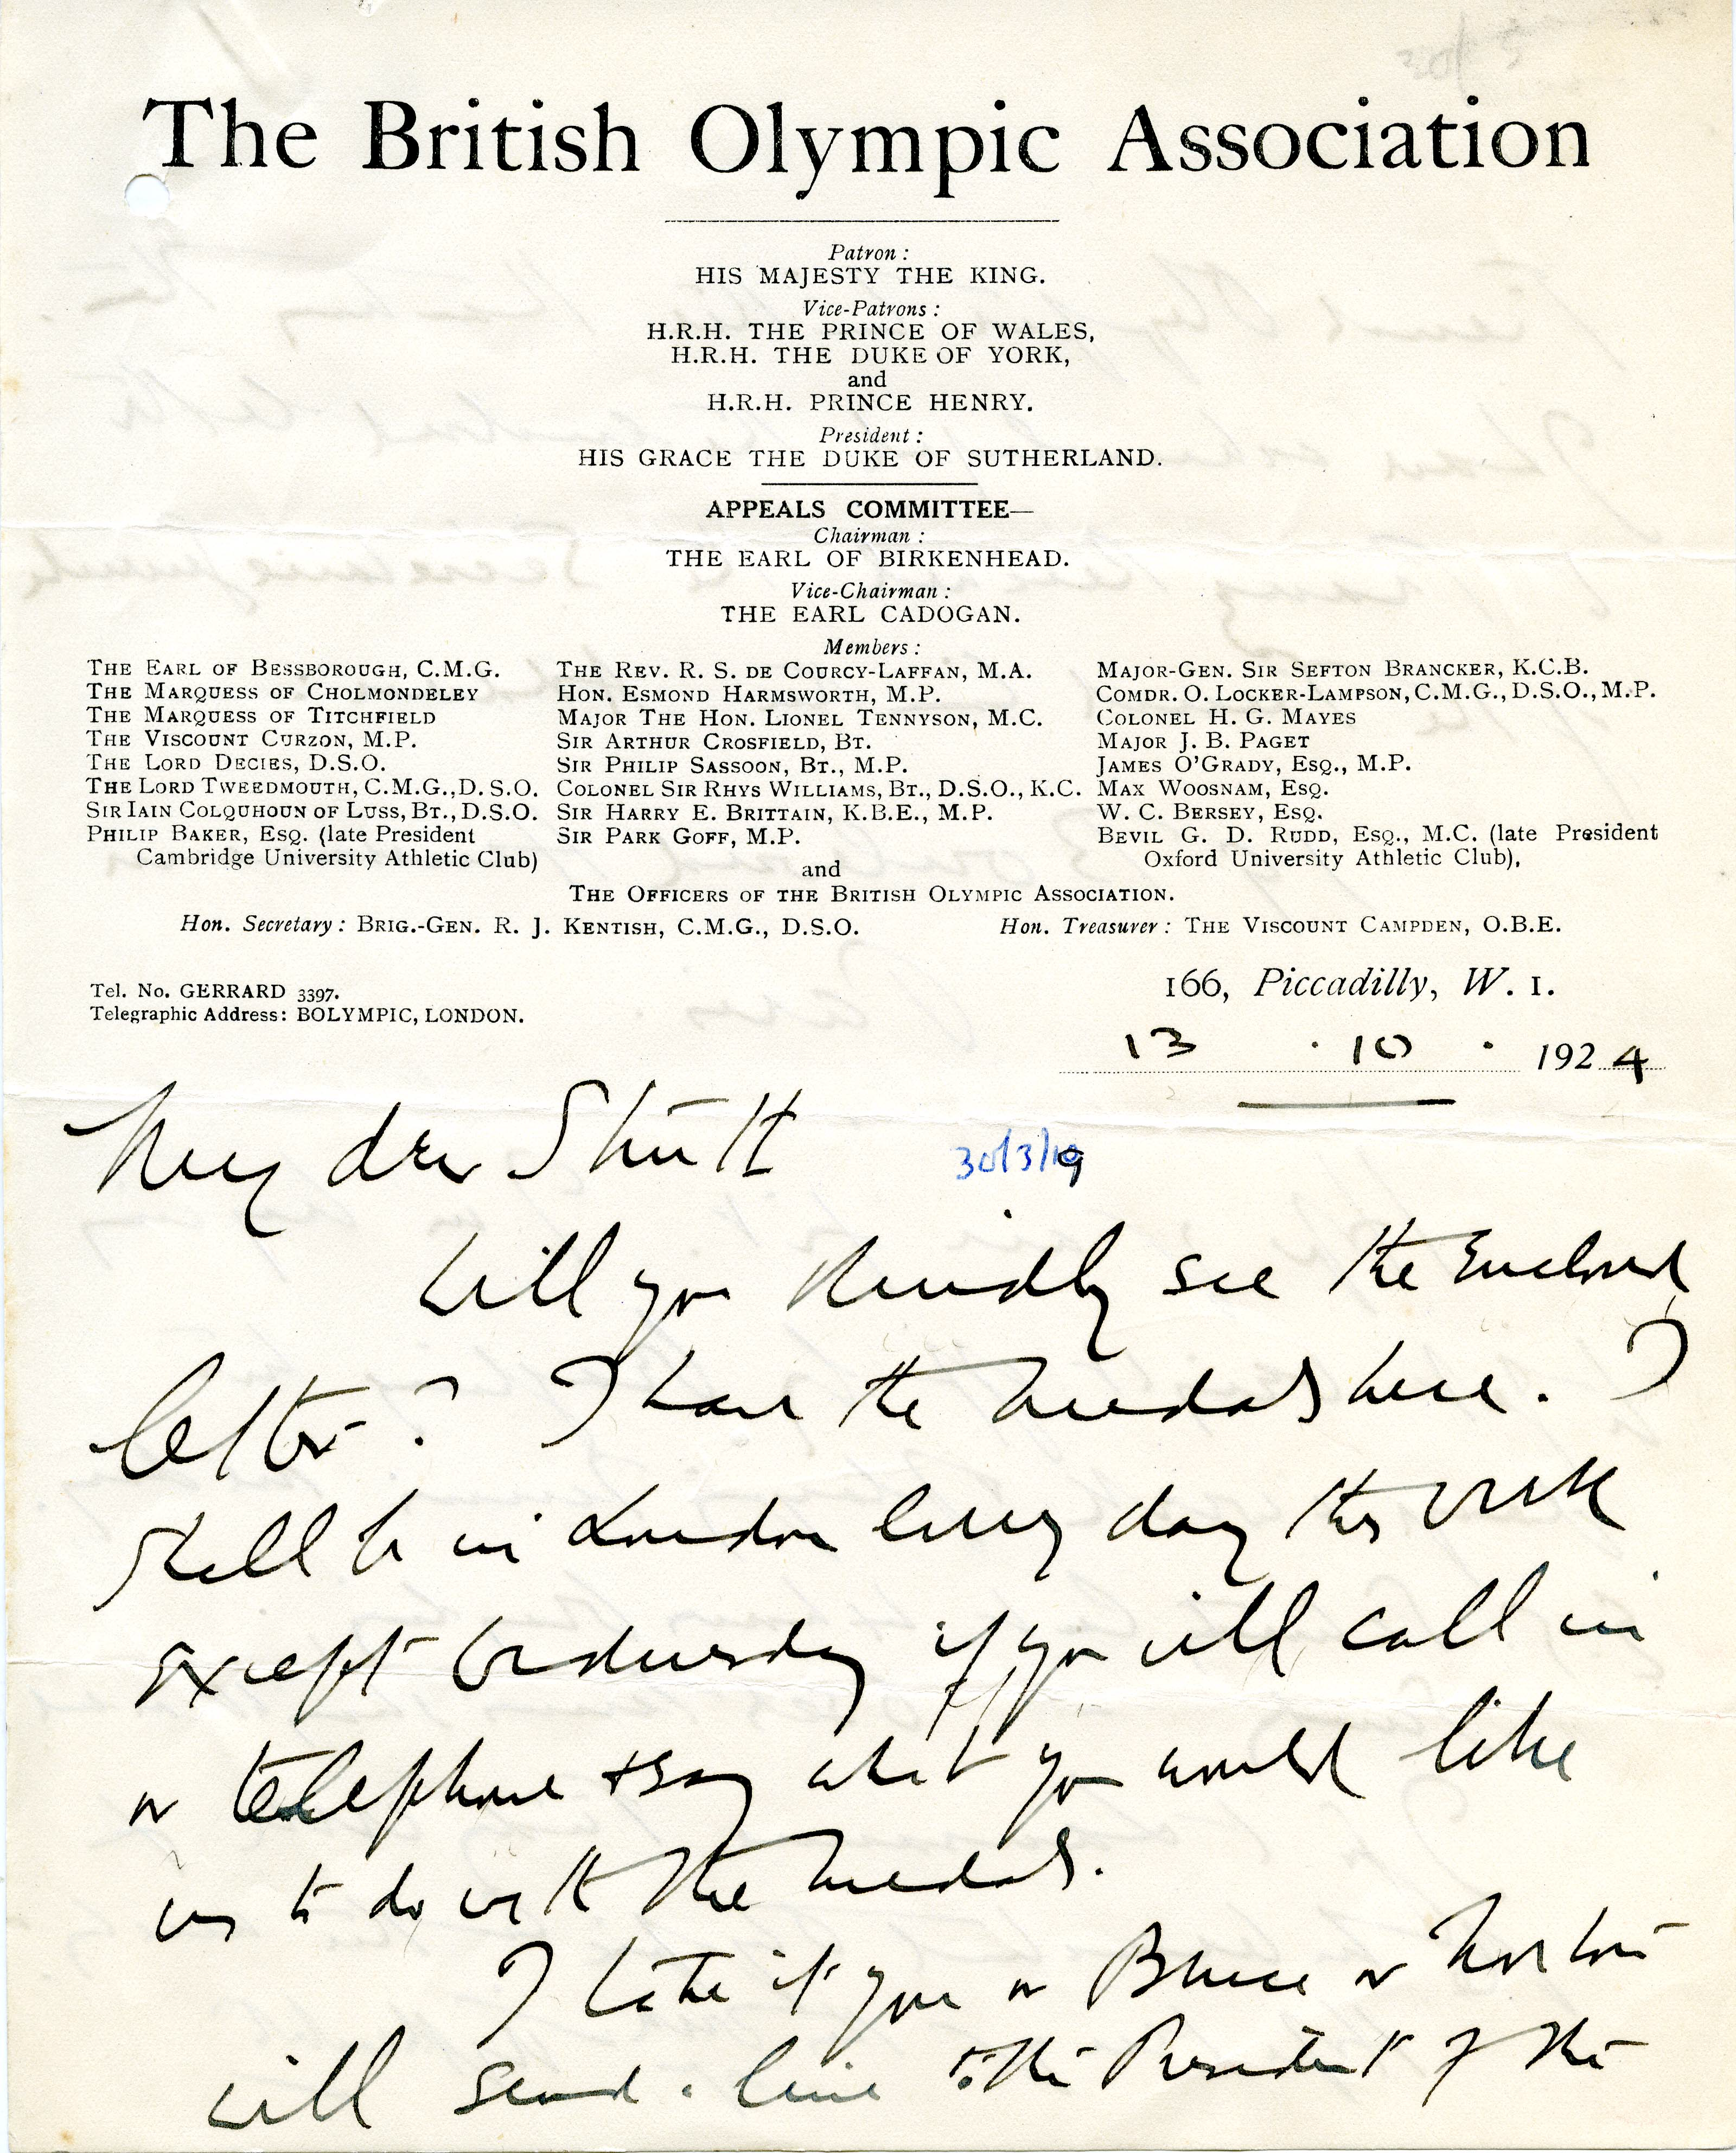 The British Olympic Association
Patron :
HIS MAJESTY THE KING.
Vice-Patrons :
H.R.H. THE PRINCE OF WALES,
H.R.H. THE DUKE OF YORK,
and
H.R.H. PRINCE HENRY.
President :
HIS GRACE THE DUKE OF SUTHERLAND.
APPEALS COMMITTEE—
Chairman :
THE EARL OF BIRKENHEAD.
Vice-Chairman :
THE EARL CADOGAN.
Members :
THE EARL OF BESSBOROUGH, C.M.G.
THE MARQUESS OF CHOLMONDELEY
THE MARQUESS OF TITCHFIELD
THE VISCOUNT CURZON, M.P.
THE LORD DECIES, D.S.O.
THE LORD TWEEDMOUTH, C.M.G., D.S.O.
SIR IAIN COLQUHOUN OF LUSS, BT., D.S.O.
PHILIP BAKER, ESQ. (late President
Cambridge University Athletic Club)
THE REV. R. S. DE COURCY-LAFFAN, M.A.
HON. ESMOND HARMSWORTH, M.P.
MAJOR THE HON. LIONEL TENNYSON, M.C.
SIR ARTHUR CROSFIELD, BT.
SIR PHILIP SASSOON, BT., M.P.
COLONEL SIR RHYS WILLIAMS, BT., D.S.O., K.C.
SIR HARRY E. BRITTAIN, K.B.E., M.P.
SIR PARK GOFF, M.P.
MAJOR-GEN. SIR SEFTON BRANCKER, K.C.B.
COMDR. O. LOCKER-LAMPSON, C.M.G., D.S.O., M.P.
COLONEL H. G. MAYES
MAJOR J. B. PAGET
JAMES O'GRADY, ESQ., M.P.
MAX WOOSNAM, ESQ.
W. C. BERSEY, ESQ.
BEVIL G. D. RUDD, ESQ., M.C. (late President
Oxford University Athletic Club),
and
THE OFFICERS OF THE BRITISH OLYMPIC ASSOCIATION.
Hon. Secretary : BRIG.-GEN. R. J. KENTISH, C.M.G., D.S.O. Hon. Treasurer : THE VISCOUNT CAMPDEN, O.B.E.
Tel. No. GERRARD 3397.
Telegraphic Address: BOLYMPIC, LONDON.
166, Piccadilly, W. 1.
13 . 10 . 1924
My dear Strutt
30/3/19
Will you kindly see the enclosed
letter? I have the medals here. I
shall be in London every day this week
except Wednesday if you will call in
or telephone & say what you would like
us to do with the medals.
I take it you or Bruce or Norton
will send a line to the President of the